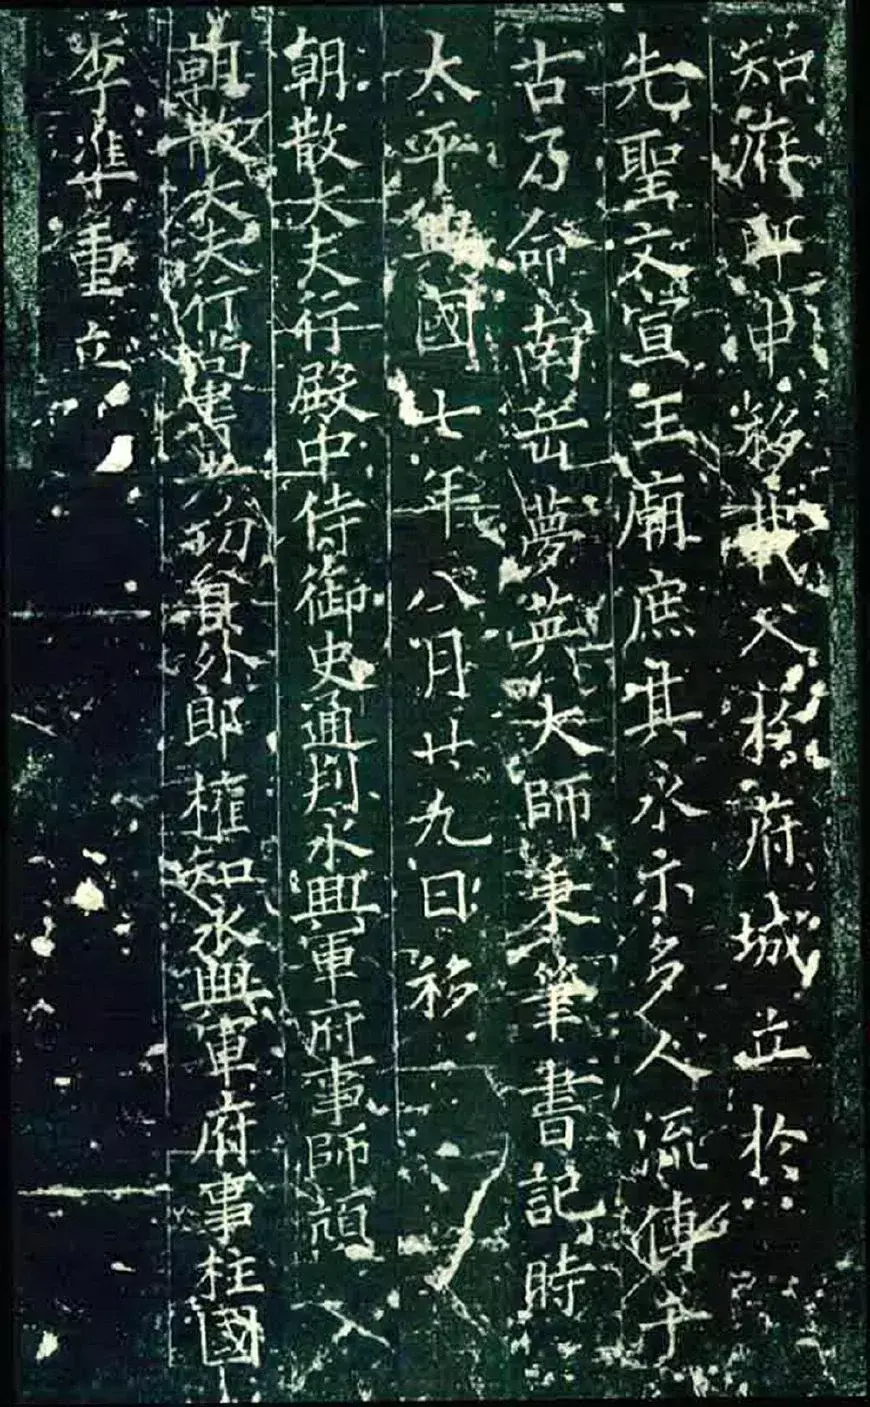 知府郎中移載入於府城立於
先聖文宣王廟庶其永示多人流傳千
古乃命南岳夢英大師秉筆書記時
太平興國七年八月廿九日移
朝散大夫行殿中侍御史通判永興軍府事師頏
朝散大夫行尚書員外郎權知永興軍府事柱國
李準重立